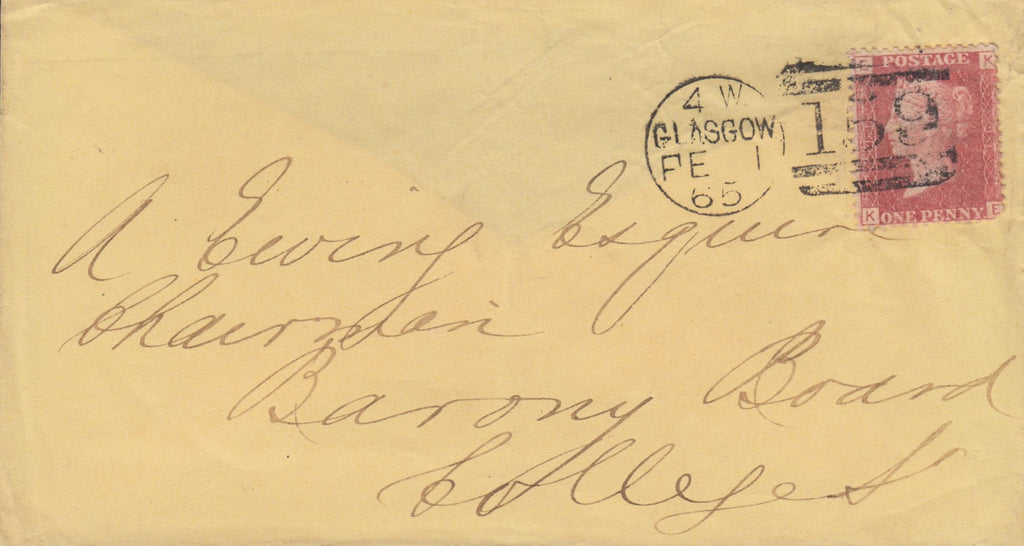 POSTAGE
K
4 W
GLASGOW
FE 1
65
159
K ONE PENNY F
A Ewing Esquire
Chairman
Barony Board
College St